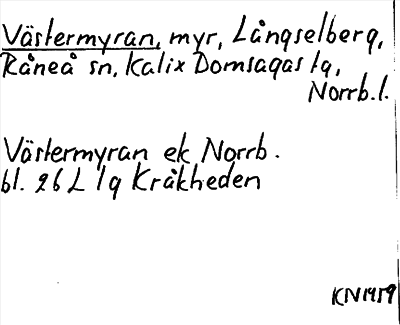 Västermyran, myr, Långselberg,
Råneå sn, Kalix Domsagas lg,
Norrb.l.
Västermyran ek Norrb.
bl. 26 L 1g Kråkheden
KN1959